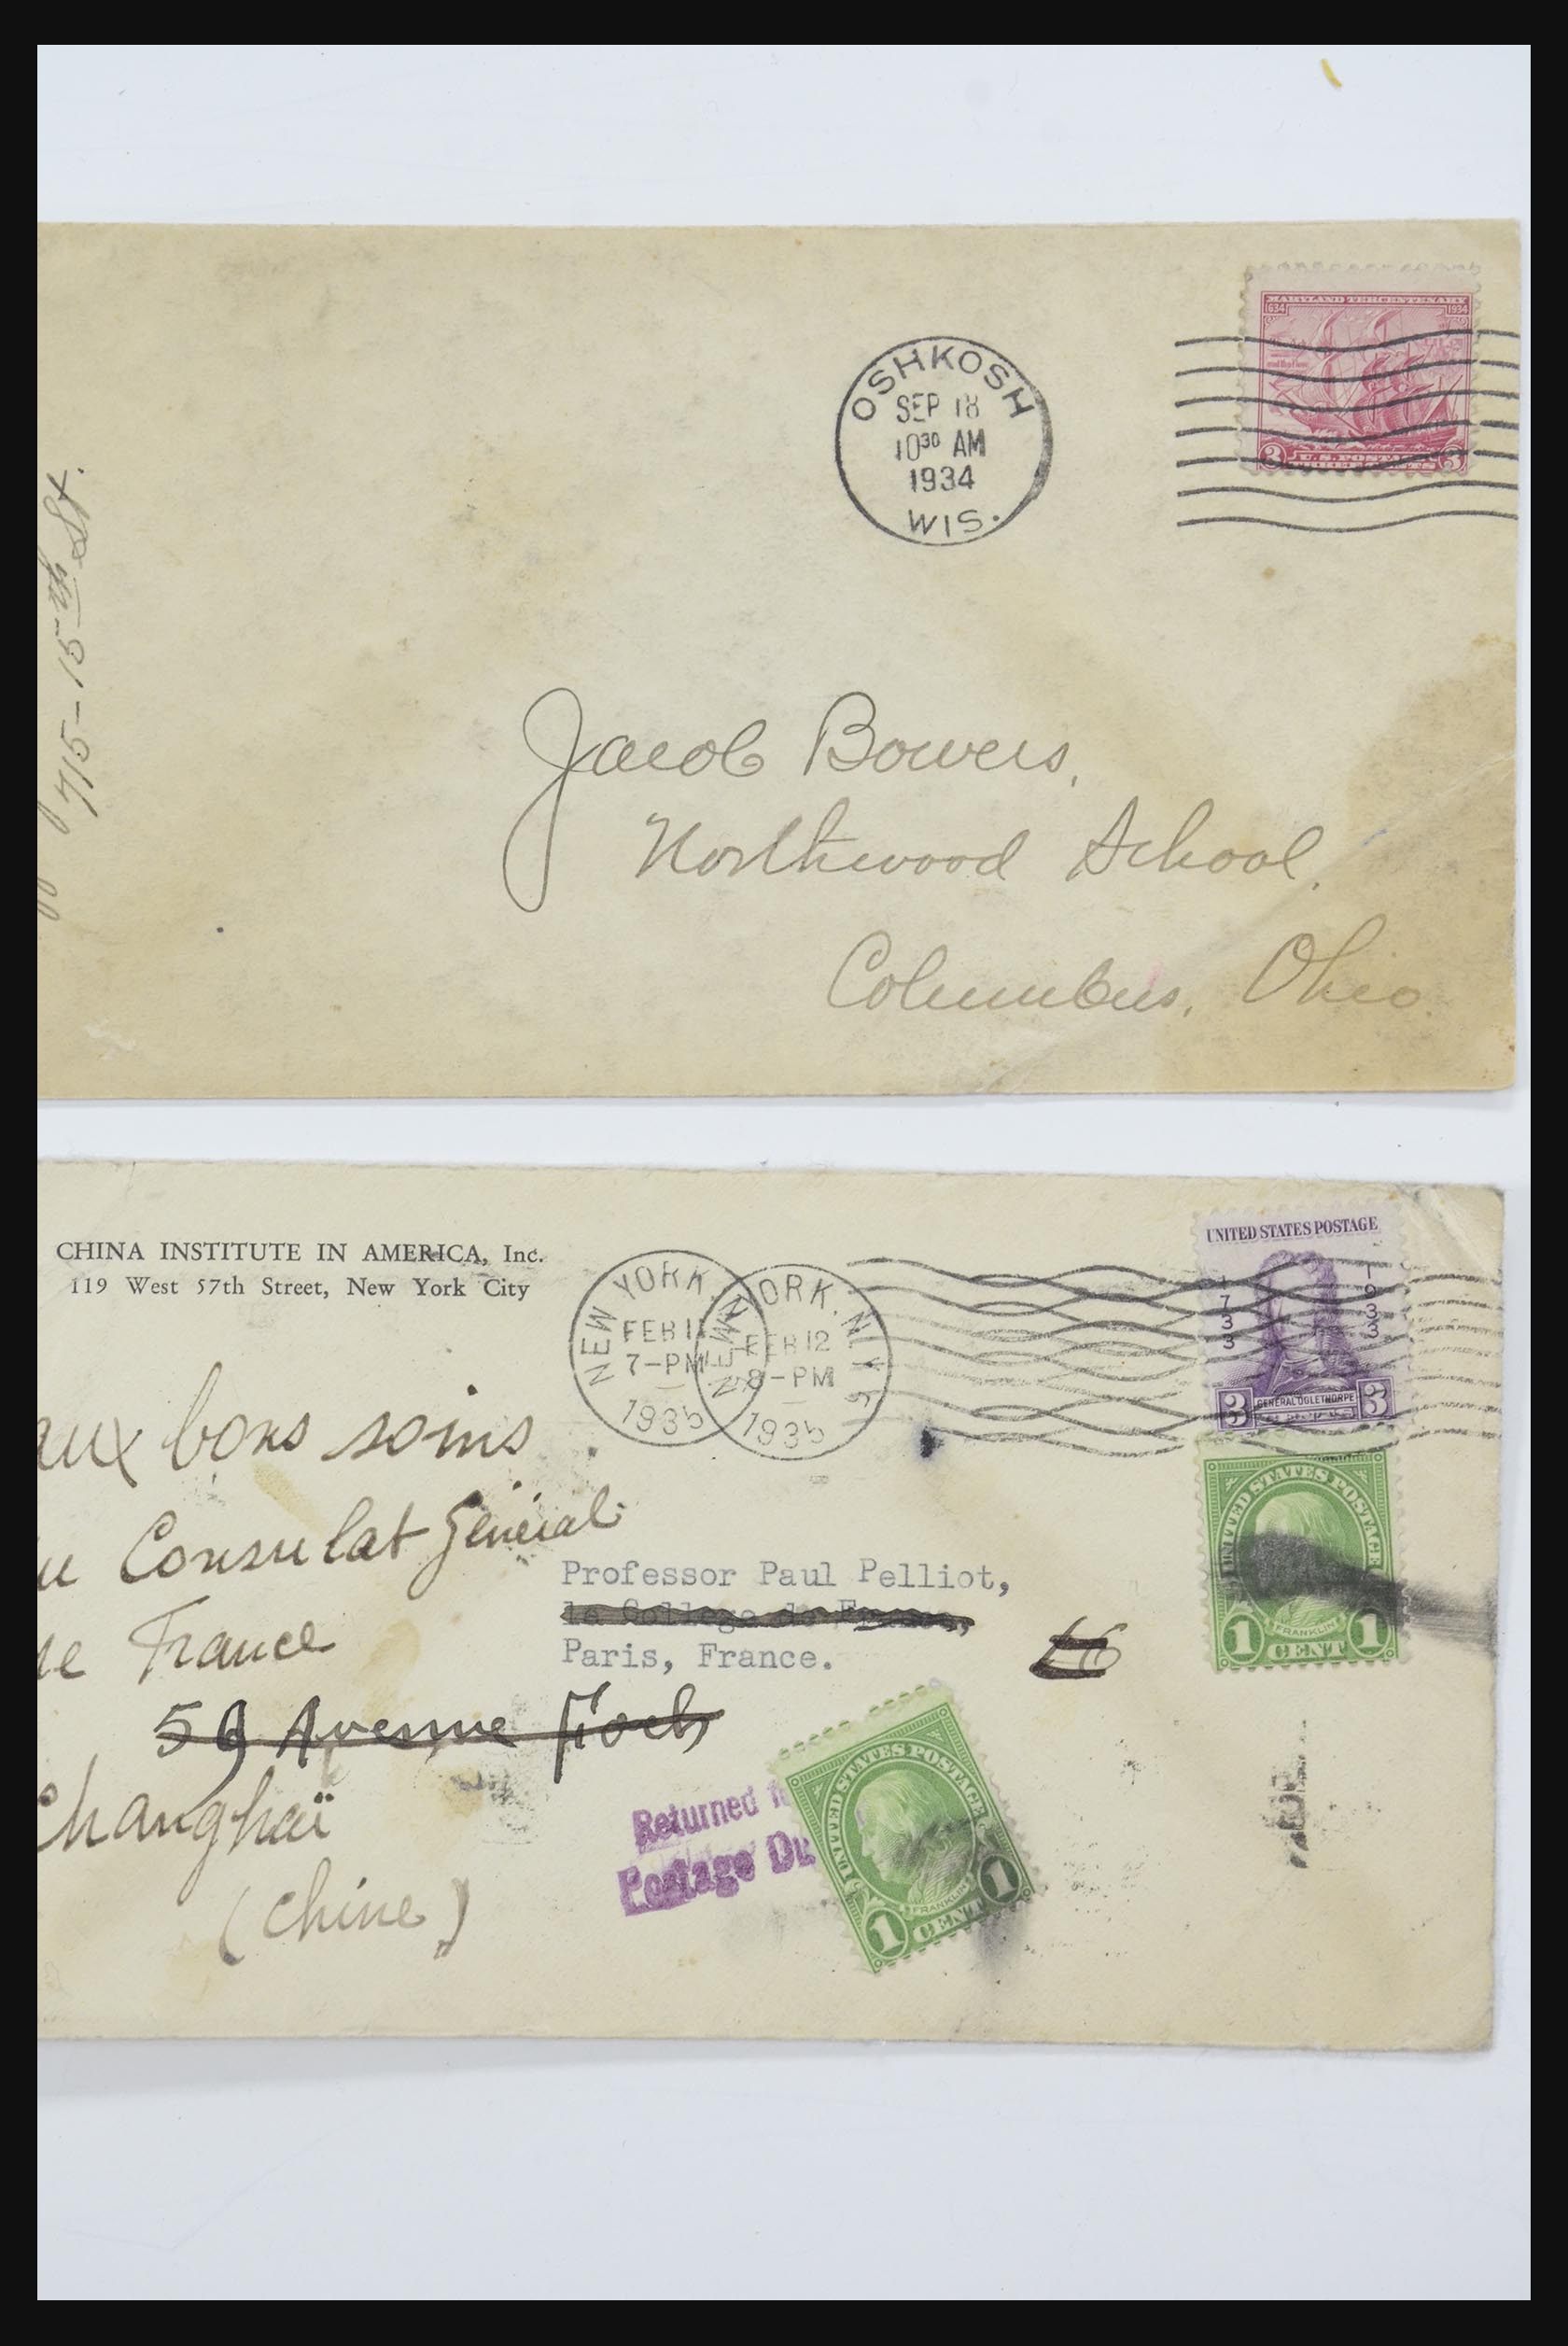 MARYLAND TERCENTENARY
1634 1934
3 U.S. POSTAGE 3
OSHKOSH
SEP 18
10³⁰ AM
1934
WIS.
715-15th St.
Jacob Bowers,
Northwood School,
Columbus, Ohio.
CHINA INSTITUTE IN AMERICA, Inc.
119 West 57th Street, New York City
NEW YORK, N.
FEB 1
7-PM
1935
YORK, N.Y.
FEB 12
8-PM
1935
UNITED STATES POSTAGE
1733
1933
3 GENERAL OGLETHORPE 3
UNITED STATES POSTAGE
1 FRANKLIN 1
CENT
aux bons soins
u Consulat Général
de France
59 Avenue Foch
Changhaï
(Chine)
Professor Paul Pelliot,
le College de France,
Paris, France.
16
Returned
Postage Du
UNITED STATES POSTAGE
1 FRANKLIN 1
CENT